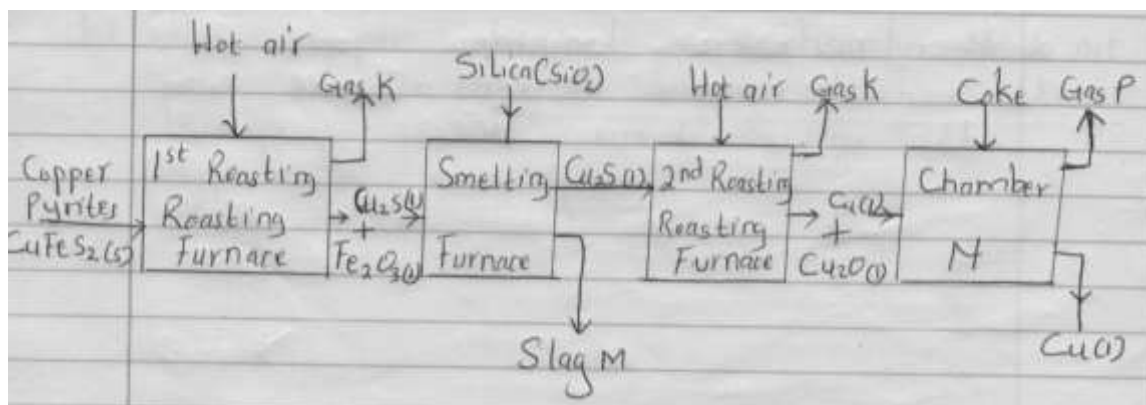 Hot air
Gas K
Silica(SiO2)
Hot air Gas K
Coke Gas P
Copper
Pyrites
CuFeS2(s)
1st Roasting
Roasting
Furnace
Cu2S(l)
+
Fe2O3(l)
Smelting
Furnace
Cu2S(l)
2nd Roasting
Roasting
Furnace
Cu(l)
+
Cu2O(l)
Chamber
N
Slag M
Cu(l)